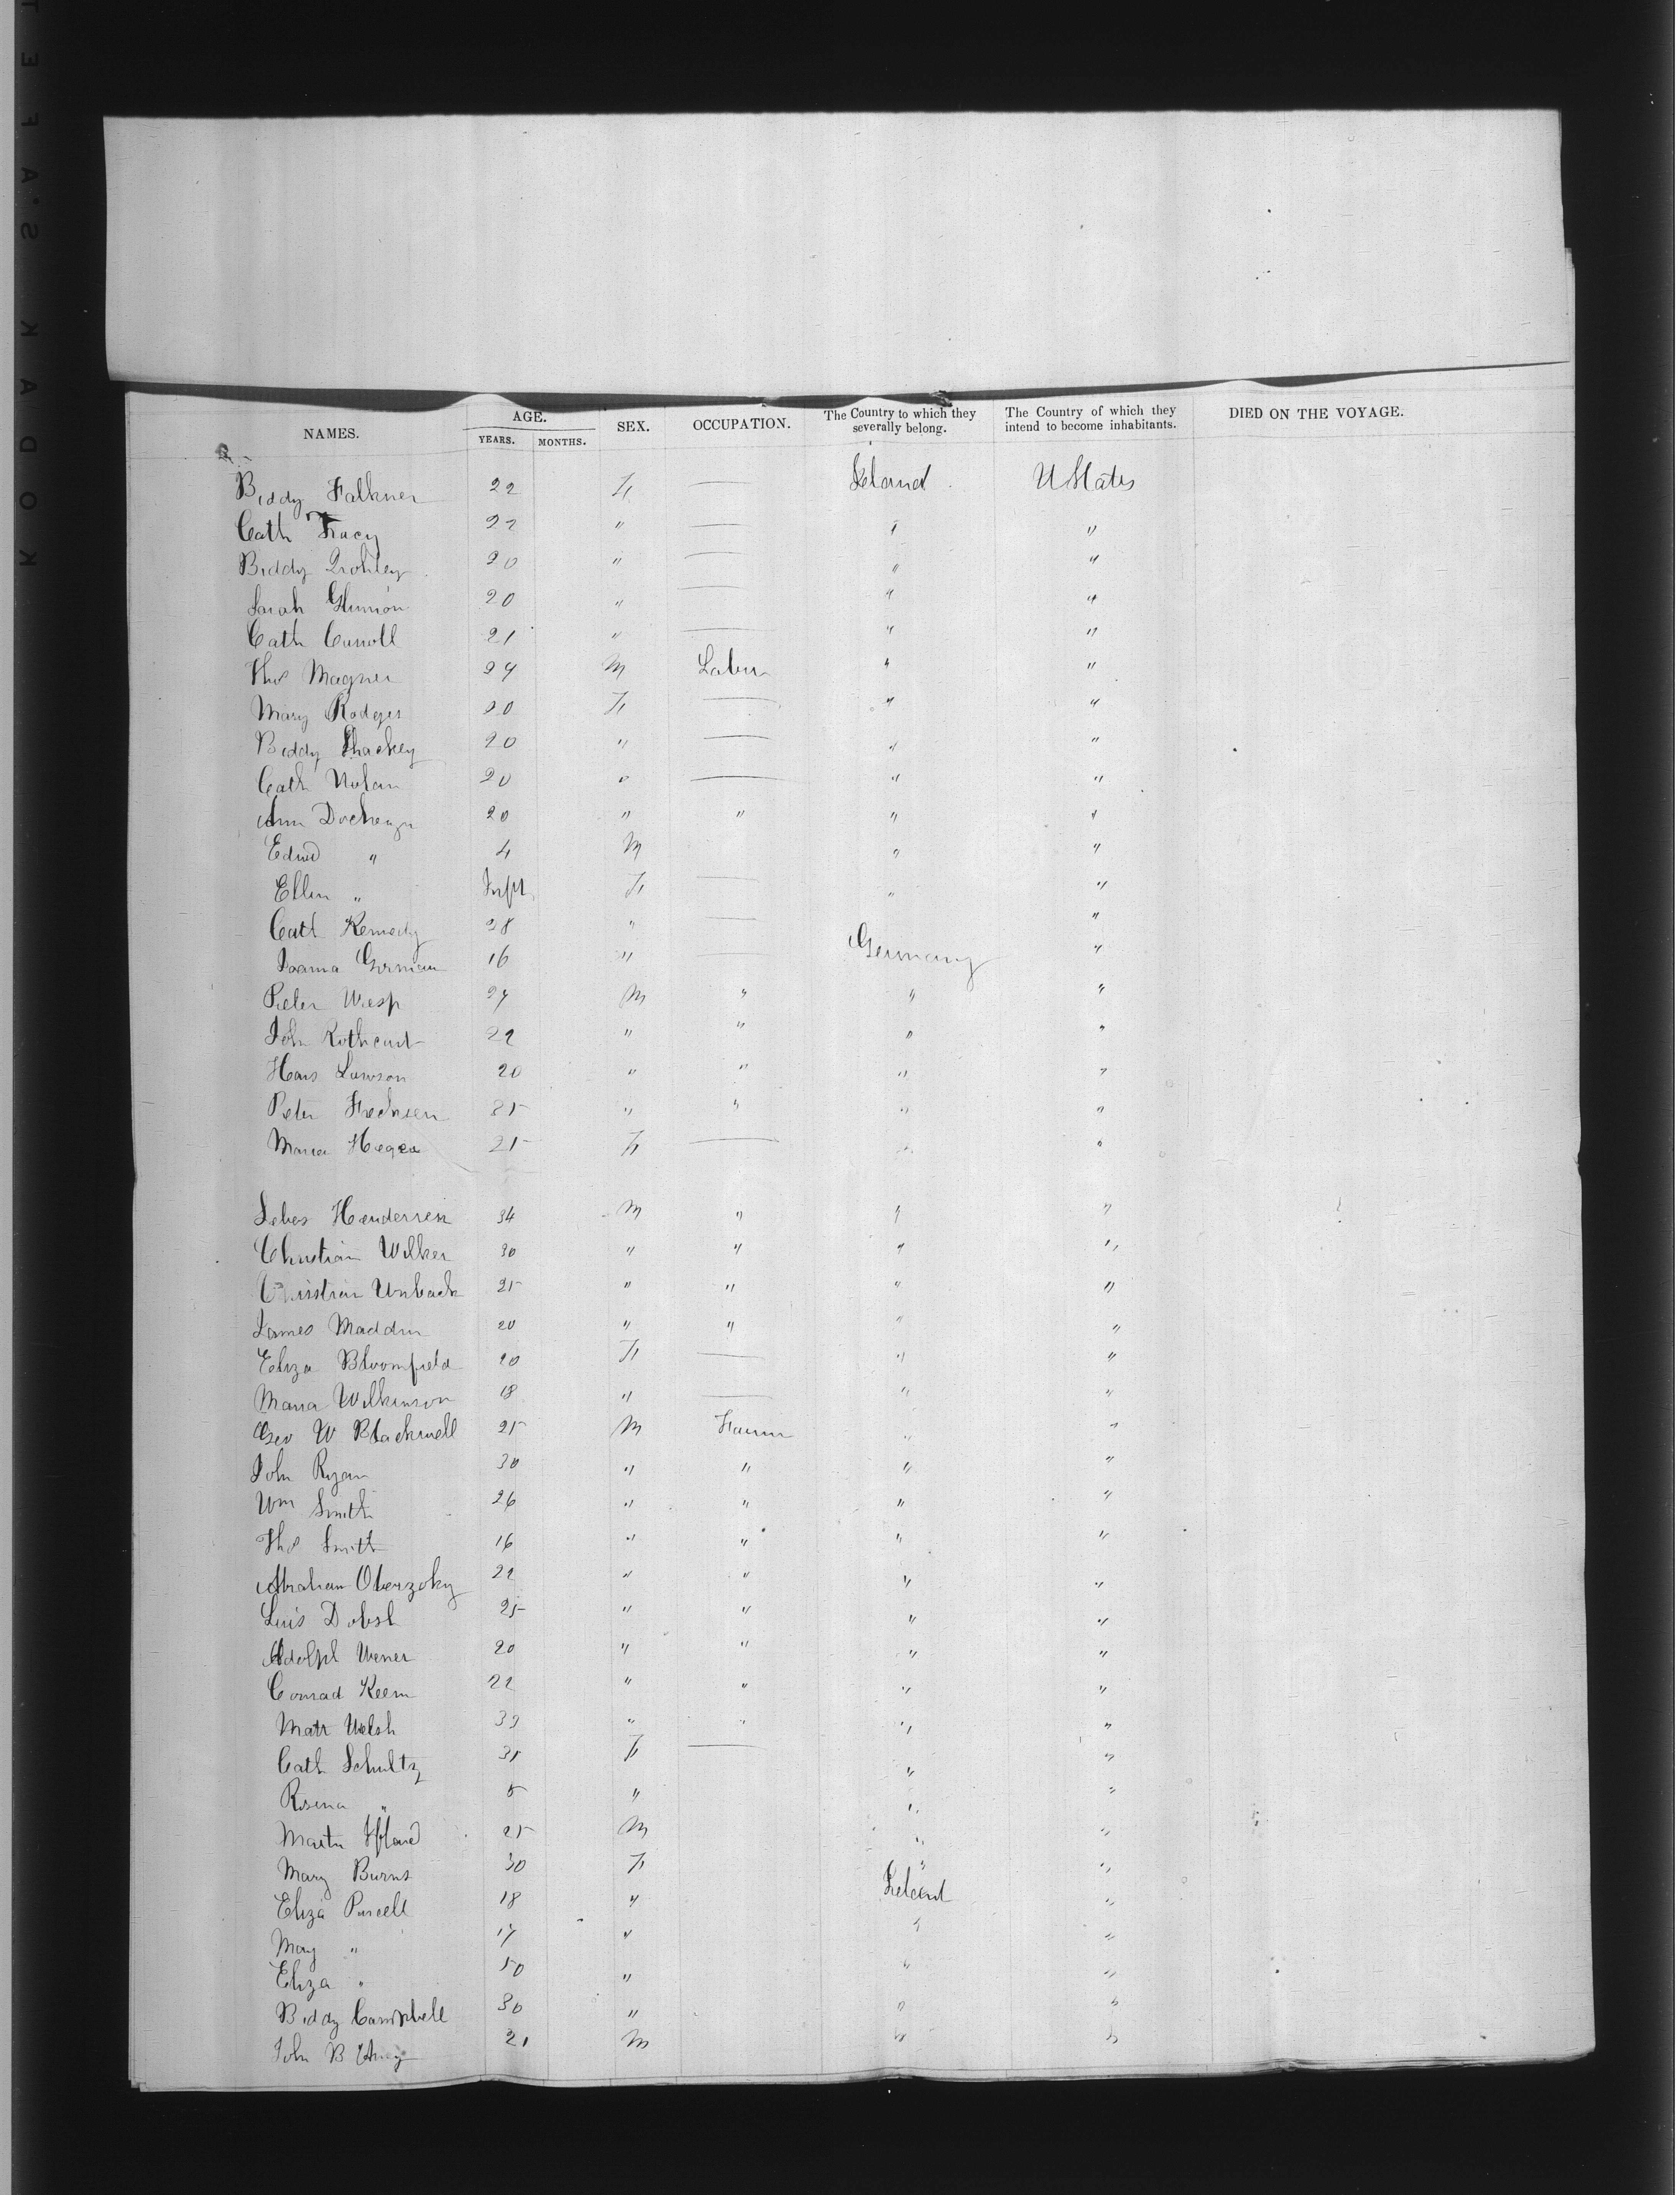 KODAK S.A.F.E.T
NAMES. AGE. YEARS. MONTHS. SEX. OCCUPATION. The Country to which they severally belong. The Country of which they intend to become inhabitants. DIED ON THE VOYAGE.
Biddy Falkner 22 F — Ireland U States
Cath Tracy 22 " — " "
Biddy 20 " — " "
Sarah 20 " — " "
Cath Carroll 21 " — " "
Thos Magner 24 M Labr " "
Mary Rodgers 20 F — " "
Biddy 20 " — " "
Cath Nolan 20 " — " "
Ann 20 " " " "
Edwd " 4 M " "
Ellen " Inft F — " "
Cath Kennedy 28 " — "
Gorman 16 " — Germany "
Peter Wesp 27 M " " "
John 22 " " " "
Hans Lawson 20 " " " "
Peter 35 " " " "
Maria 25 F — " "
34 M " " "
Christian Wilker 30 " " " "
Christian 25 " " " "
James Madden 20 " " " "
Eliza Bloomfield 20 F — " "
Maria Wilkinson 18 " — " "
Geo W Blackwell 25 M Farmr " "
John Ryan 30 " " " "
Wm Smith 26 " " " "
Thos Smith 16 " " " "
Abraham 22 " " " "
Luis Dobsh 25 " " " "
Adolph Wener 20 " " " "
Conrad Keem 22 " " " "
Matt Welsh 33 " " " "
Cath Schultz 35 F — " "
Rosena " 5 " " "
Martin 25 M " "
Mary Burns 30 F " "
Eliza Purcell 18 " Ireland "
May " 17 " " "
Eliza " 50 " " "
Biddy Campbell 30 " " "
John B 21 M " "